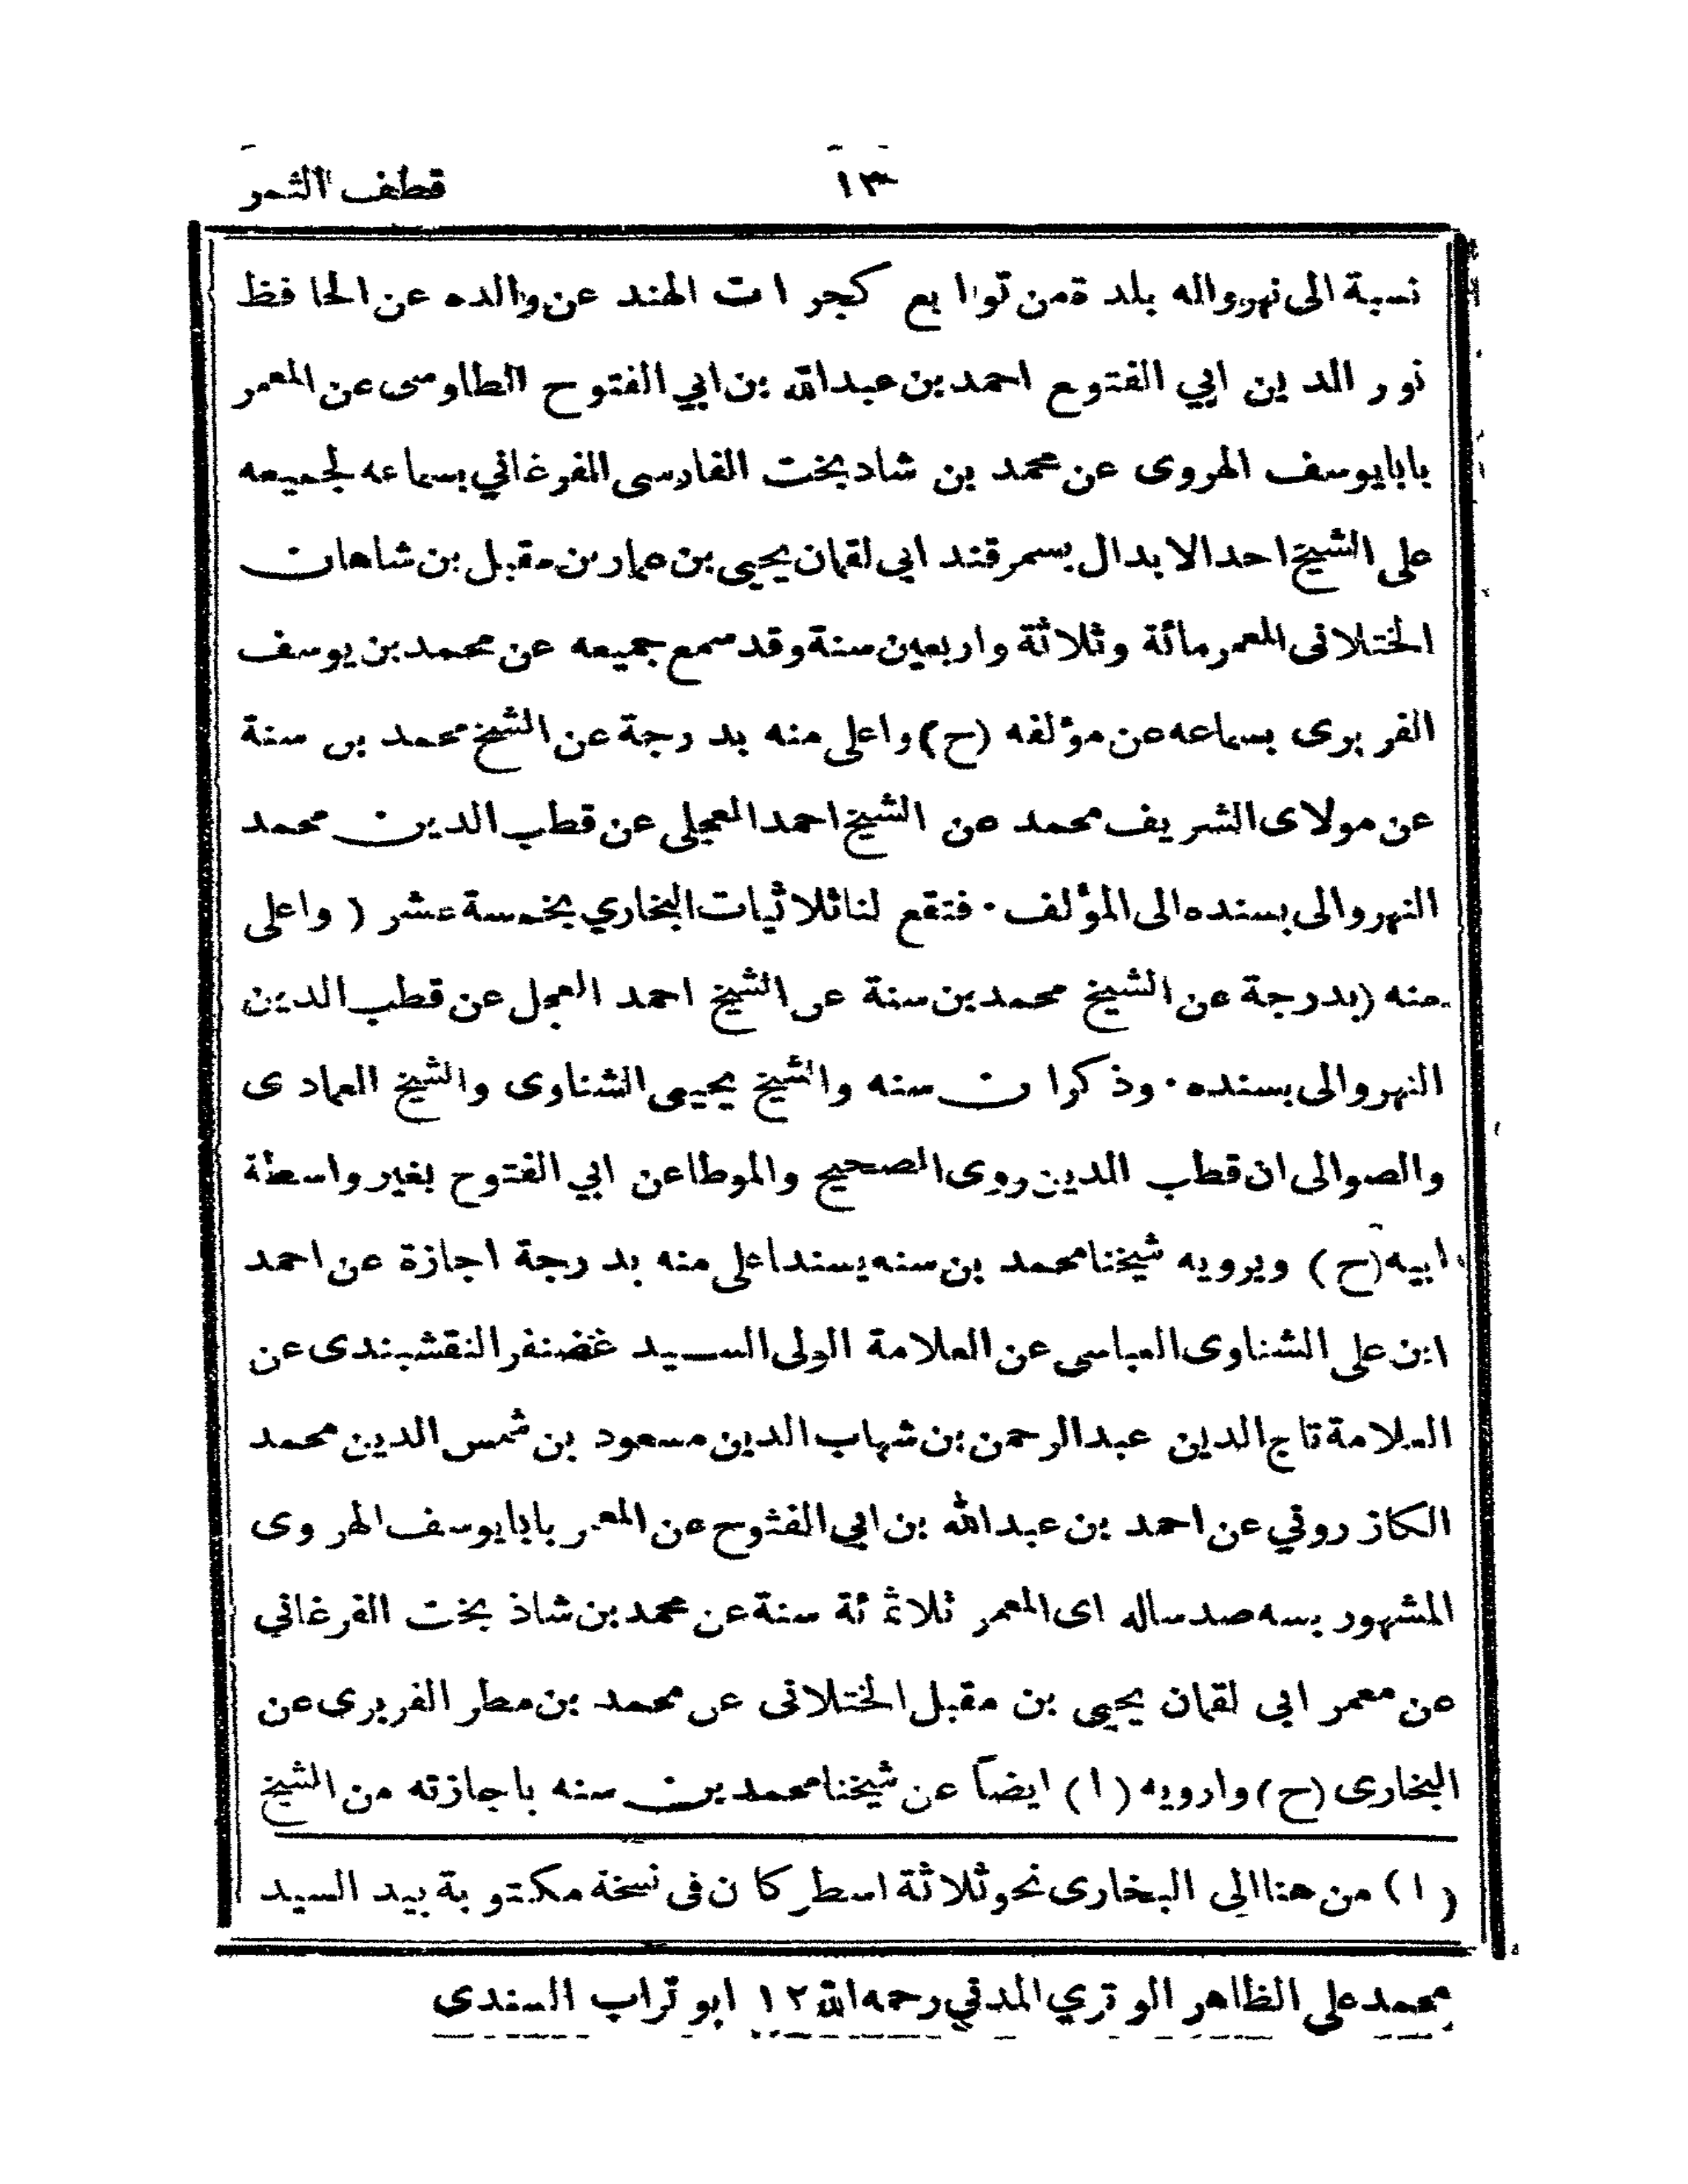 قطف الثمر
١٣
نسبة الى نهرواله بلدة من توابع كجرات الهند عن والده عن الحافظ
نور الدين ابي الفتوع احمد بن عبدالله بن ابي الفتوح الطاوسى عن المعمر
بابا يوسف الهروى عن محمد بن شاد بخت الفارسى الفرغاني بسماعه لجميعه
على الشيخ احد الابدال بسمرقند ابى لقمان يحيى بن عمار بن مقبل بن شاهان
الختلانى المعمر مائة وثلاثة واربعين سنة وقد سمع جميعه عن محمد بن يوسف
الفربرى بسماعه عن مؤلفه (ح) واعلى منه بدرجة عن الشيخ محمد بن سنة
عن مولاى الشريف محمد عن الشيخ احمد العجلى عن قطب الدين محمد
النهروالى بسنده الى المؤلف ٠ فتقع لنا ثلاثيات البخاري بخمسة عشر ( واعلى
منه (بدرجة عن الشيخ محمد بن سنة عن الشيخ احمد العجل عن قطب الدين
النهروالى بسنده ٠ وذكر ان سنه والشيخ يحيى الشناوى والشيخ العمادى
والصوالى ان قطب الدين روى الصحيح والموطا عن ابي الفتوح بغير واسطة
ابيه (ح) ويرويه شيخنا محمد بن سنه بسند اعلى منه بدرجة اجازة عن احمد
ابن على الشناوى العباسى عن العلامة الولى السيد غضنفر النقشبندى عن
العلامة تاج الدين عبدالرحمن بن شهاب الدين مسعود بن شمس الدين محمد
الكازروني عن احمد بن عبدالله بن ابي الفتوح عن المعمر بابا يوسف الهروى
المشهور بسه صد ساله اى المعمر ثلاثمائة سنة عن محمد بن شاذ بخت الفرغاني
عن معمر ابى لقمان يحيى بن مقبل الختلانى عن محمد بن مطر الفربرى عن
البخارى (ح) وارويه (١) ايضاً عن شيخنا محمد بن سنه باجازته من الشيخ
(١) من هنا الى البخارى نحو ثلاثة اسطر كان فى نسخة مكتوبة بيد السيد
محمد على الظاهر الوتري المدني رحمه الله ١٢ ابو تراب السندى